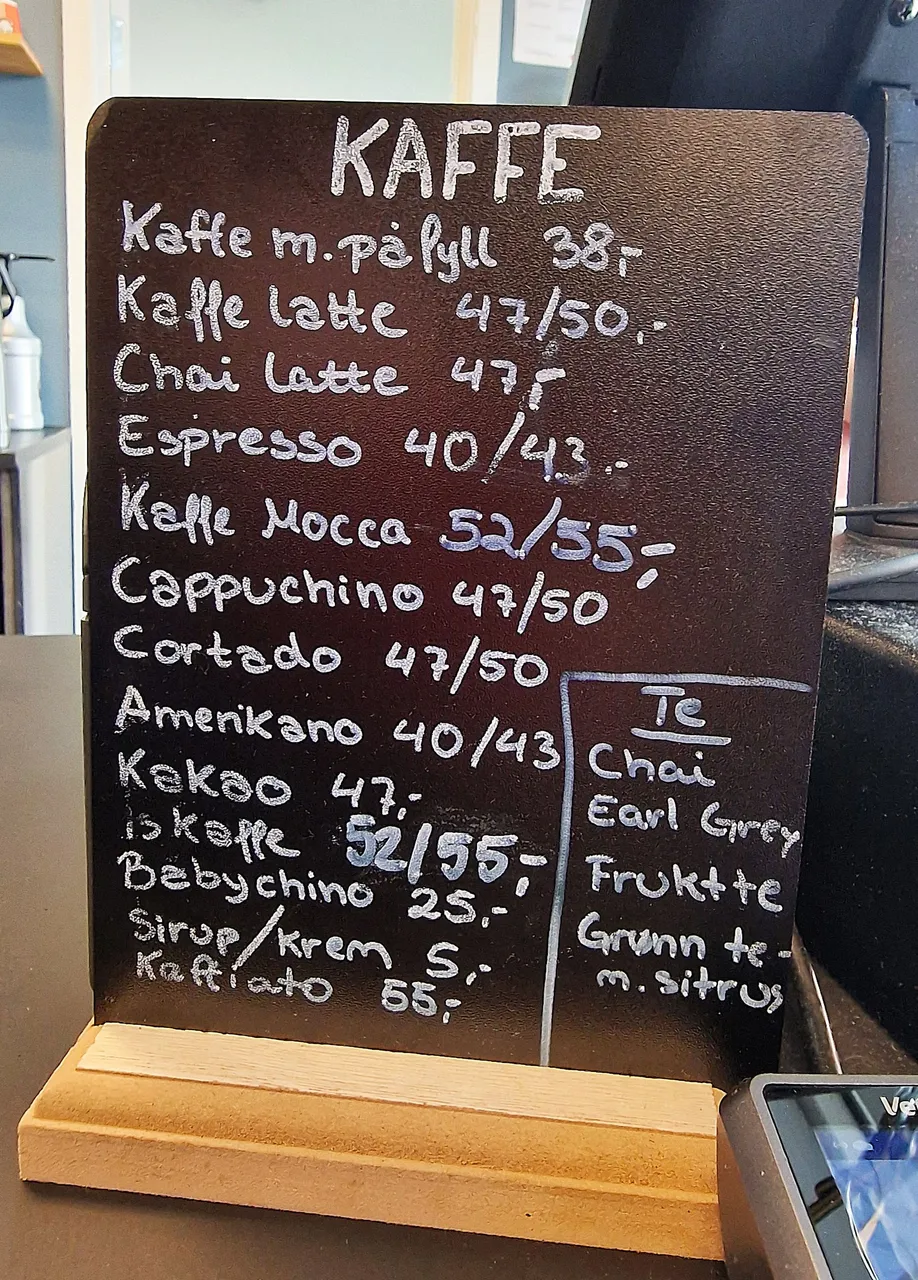 KAFFE
Kaffe m. påfyll 38,-
Kaffe latte 47/50,-
Chai latte 47,-
Espresso 40/43.-
Kaffe Mocca 52/55,-
Cappuchino 47/50
Cortado 47/50
Amerikano 40/43
Kakao 47,-
Iskaffe 52/55,-
Babychino 25,-
Sirup/krem 5,-
Kaffiato 55,-
Te
Chai
Earl Grey
Fruktte
Grønn te-
m. sitrus